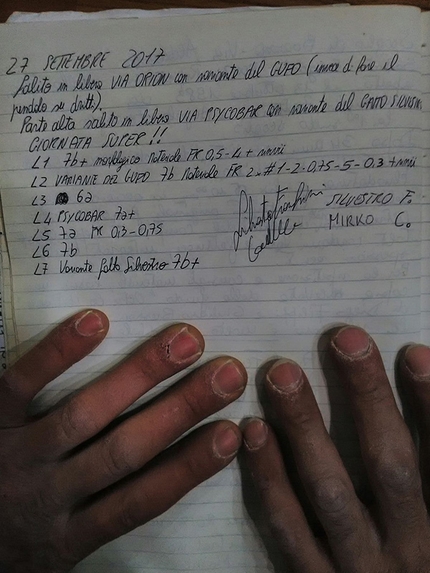 27 SETTEMBRE 2017
Salito in libera VIA ORION con variante del GUFO (invece di fare il
pendolo su dritti).
Parte alta salito in libera VIA PSYCOBAR con variante del GATTO SILVESTRO
GIORNATA SUPER!!
L1 7b+ morfologico Materiale FR 0,5-4 + nuts
L2 VARIANTE DEL GUFO 7b Materiale FR 2x #1-2-0,75-5-0.3 +
L3 6a
L4 PSYCOBAR 7a+
L5 7a FR 0,3-0,75
L6 7b
L7 Variante Gatto Silvestro 7b+
SILVESTRO F.
MIRKO C.